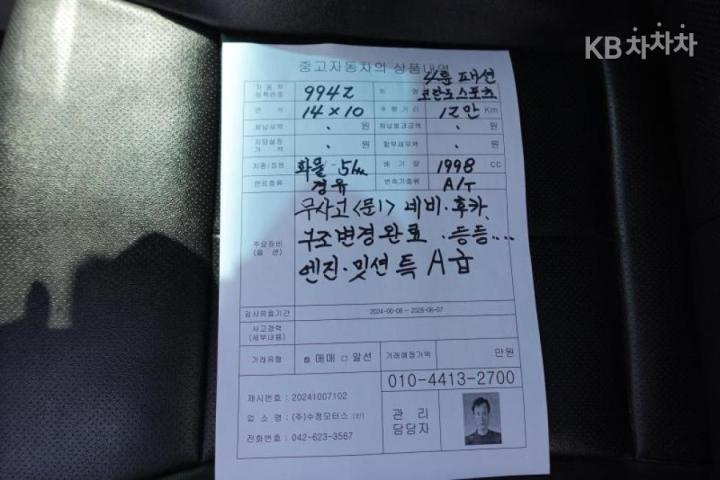 KB차차차
중고자동차의 상품내역
4륜 패션
자동차등록번호 9942 차명 코란도스포츠
연식 14×10 주행거리 12만 Km
체납세액 · 원 체납범과금액 · 원
저당설정가액 · 원 할부세무액 · 원
차종/정원 화물-5 배기량 1998 CC
연료종류 경유 변속기종류 A/T
무사고<문1> 네비·후카.
주요장비(옵션) 구조변경완료·등등...
엔진·밋션 특 A급
검사유효기간 2024-06-08 ~ 2026-06-07
사고경력(세부내용)
거래유형 매매 □ 알선 거래예정가액 만원
010-4413-2700
제시번호 : 20241007102
업 소 명 : (주)수정모터스
전화번호 : 042-623-3567
관 리
담당자